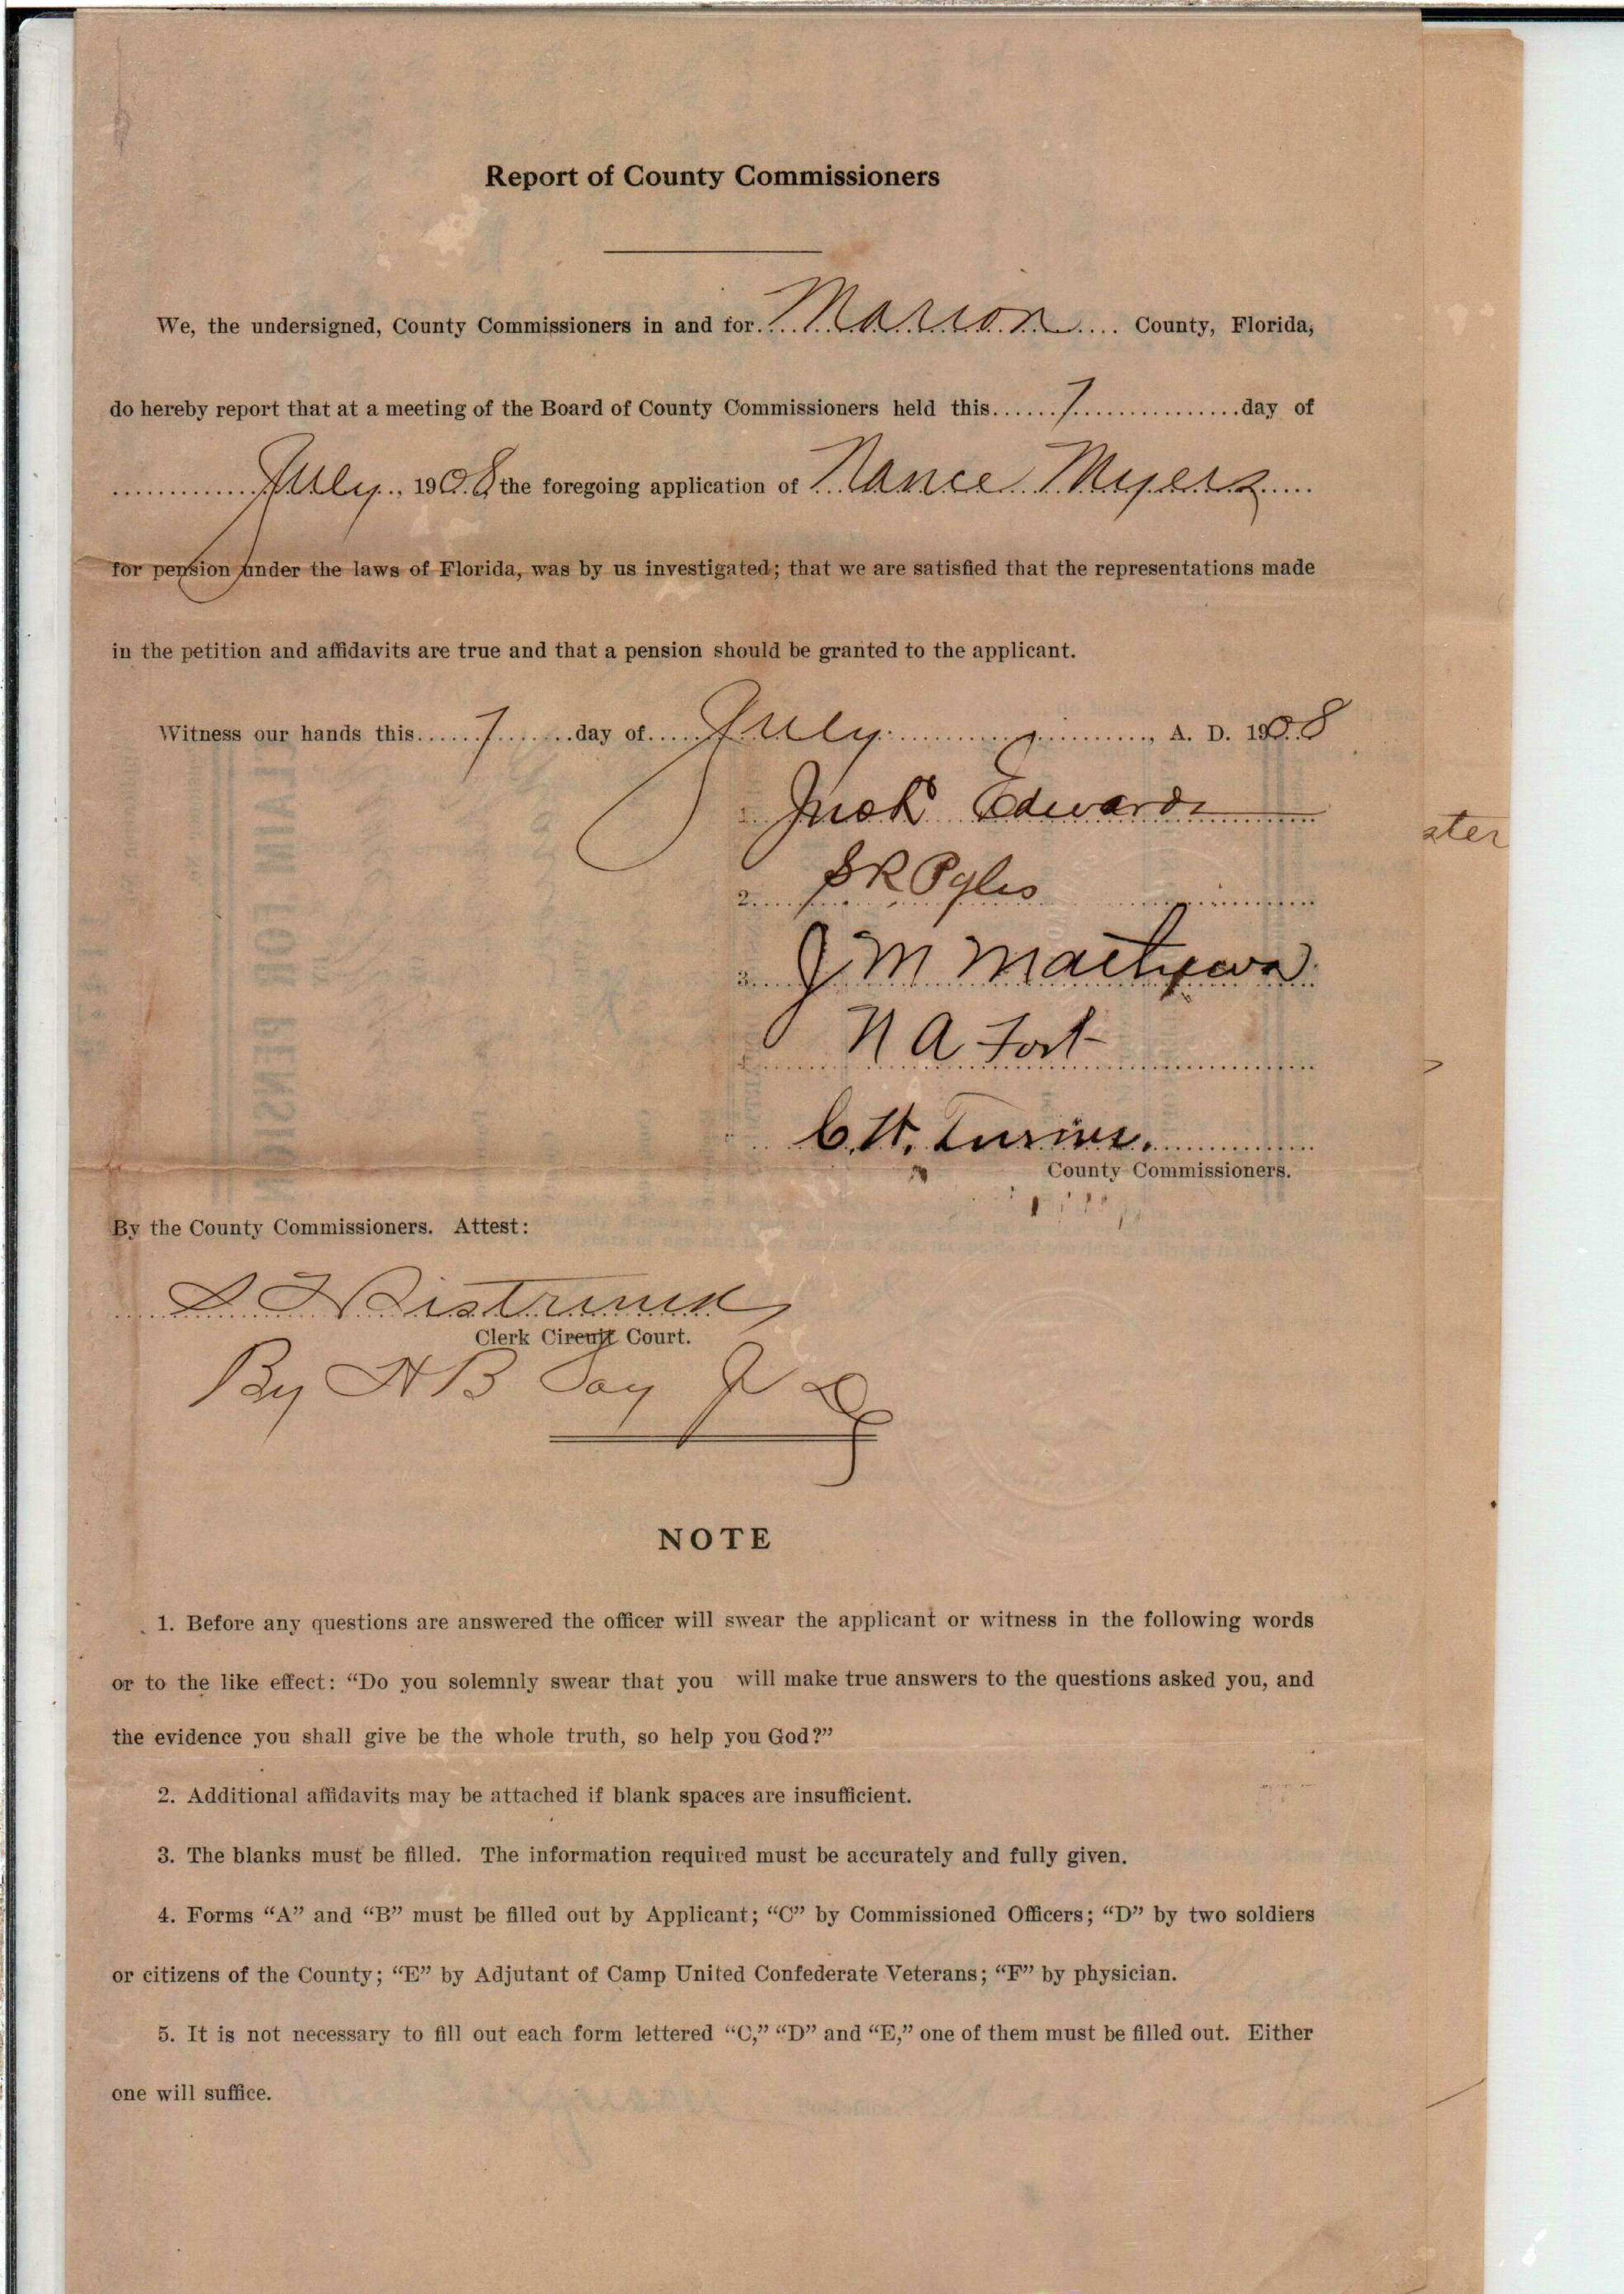 Report of County Commissioners
We, the undersigned, County Commissioners in and for Marion County, Florida,
do hereby report that at a meeting of the Board of County Commissioners held this 7 day of
July, 1908 the foregoing application of Nance Myers
for pension under the laws of Florida, was by us investigated; that we are satisfied that the representations made
in the petition and affidavits are true and that a pension should be granted to the applicant.
Witness our hands this 7 day of July, A. D. 1908
Edwards
2. S R Pyles
3. J M Mathews
N A Fort
C. H.
County Commissioners.
By the County Commissioners. Attest:
S T Sistrunk
Clerk Circuit Court.
By H B
NOTE
1. Before any questions are answered the officer will swear the applicant or witness in the following words
or to the like effect: “Do you solemnly swear that you will make true answers to the questions asked you, and
the evidence you shall give be the whole truth, so help you God?”
2. Additional affidavits may be attached if blank spaces are insufficient.
3. The blanks must be filled. The information required must be accurately and fully given.
4. Forms “A” and “B” must be filled out by Applicant; “C” by Commissioned Officers; “D” by two soldiers
or citizens of the County; “E” by Adjutant of Camp United Confederate Veterans; “F” by physician.
5. It is not necessary to fill out each form lettered “C,” “D” and “E,” one of them must be filled out. Either
one will suffice.